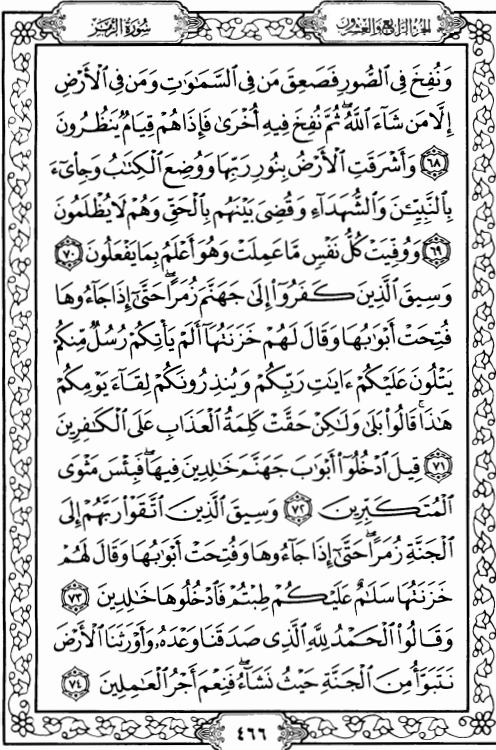 الجزء الرابع والعشرون
سورة الزمر
وَنُفِخَ فِي ٱلصُّورِ فَصَعِقَ مَن فِي ٱلسَّمَٰوَٰتِ وَمَن فِي ٱلْأَرْضِ
إِلَّا مَن شَآءَ ٱللَّهُ ۖ ثُمَّ نُفِخَ فِيهِ أُخْرَىٰ فَإِذَا هُمْ قِيَامٌ يَنظُرُونَ
٦٨ وَأَشْرَقَتِ ٱلْأَرْضُ بِنُورِ رَبِّهَا وَوُضِعَ ٱلْكِتَٰبُ وَجِا۟يٓءَ
بِٱلنَّبِيِّـۧنَ وَٱلشُّهَدَآءِ وَقُضِيَ بَيْنَهُم بِٱلْحَقِّ وَهُمْ لَا يُظْلَمُونَ
٦٩ وَوُفِّيَتْ كُلُّ نَفْسٍ مَّا عَمِلَتْ وَهُوَ أَعْلَمُ بِمَا يَفْعَلُونَ ٧٠
وَسِيقَ ٱلَّذِينَ كَفَرُوٓا۟ إِلَىٰ جَهَنَّمَ زُمَرًا ۖ حَتَّىٰٓ إِذَا جَآءُوهَا
فُتِحَتْ أَبْوَٰبُهَا وَقَالَ لَهُمْ خَزَنَتُهَآ أَلَمْ يَأْتِكُمْ رُسُلٌ مِّنكُمْ
يَتْلُونَ عَلَيْكُمْ ءَايَٰتِ رَبِّكُمْ وَيُنذِرُونَكُمْ لِقَآءَ يَوْمِكُمْ
هَٰذَا ۚ قَالُوا۟ بَلَىٰ وَلَٰكِنْ حَقَّتْ كَلِمَةُ ٱلْعَذَابِ عَلَى ٱلْكَٰفِرِينَ
٧١ قِيلَ ٱدْخُلُوٓا۟ أَبْوَٰبَ جَهَنَّمَ خَٰلِدِينَ فِيهَا ۖ فَبِئْسَ مَثْوَى
ٱلْمُتَكَبِّرِينَ ٧٢ وَسِيقَ ٱلَّذِينَ ٱتَّقَوْا۟ رَبَّهُمْ إِلَى
ٱلْجَنَّةِ زُمَرًا ۖ حَتَّىٰٓ إِذَا جَآءُوهَا وَفُتِحَتْ أَبْوَٰبُهَا وَقَالَ لَهُمْ
خَزَنَتُهَا سَلَٰمٌ عَلَيْكُمْ طِبْتُمْ فَٱدْخُلُوهَا خَٰلِدِينَ ٧٣
وَقَالُوا۟ ٱلْحَمْدُ لِلَّهِ ٱلَّذِي صَدَقَنَا وَعْدَهُۥ وَأَوْرَثَنَا ٱلْأَرْضَ
نَتَبَوَّأُ مِنَ ٱلْجَنَّةِ حَيْثُ نَشَآءُ ۖ فَنِعْمَ أَجْرُ ٱلْعَٰمِلِينَ ٧٤
٤٦٦